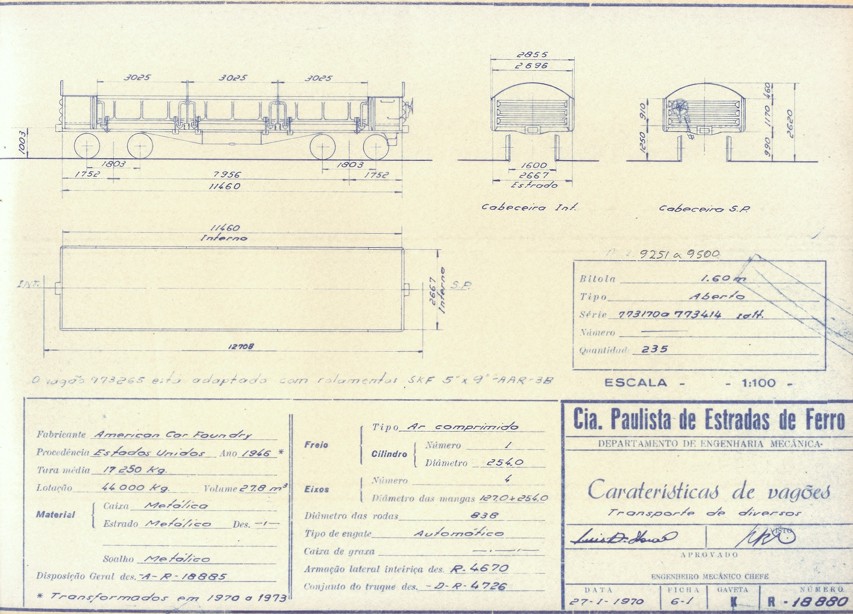 2855
2696
3025 3025 3025
1003
1803 1803
1752 7956 1752
11460
1600
2667
Estrado
Cabeceira Int.
910
1250
460
1170
990
2620
Cabeceira S.P.
11460
Interno
INT.
2667
Interno
S.P.
12708
9251 a 9500
Bitola 1.60 m
Tipo Aberto
Série 773170 a 773414
Número
Quantidad. 235
ESCALA - - 1:100 -
O vagão 773265 está adaptado com rolamentos SKF 5" x 9" - AAR-3B
Fabricante American Car Foundry
Procedência Estados Unidos Ano 1946 *
Tara média 17 250 Kg.
Lotação 44 000 Kg. Volume 27.8 m³
Material
Caixa Metálica
Estrado Metálico Des. -1-
Soalho Metálico
Disposição Geral des. -A-R-18885
* Transformados em 1970 a 1973
Freio
Tipo Ar comprimido
Cilindro
Número 1
Diâmetro 254.0
Eixos
Número 4
Diâmetro das mangas 127.0 x 254.0
Diâmetro das rodas 838
Tipo de engate Automático
Caixa de graxa
Armação lateral inteiriça des. R. 4670
Conjunto do truque des. -D-R-4726
Cia. Paulista de Estradas de Ferro
DEPARTAMENTO DE ENGENHARIA MECÂNICA·
Caraterísticas de vagões
Transporte de diversos
VISTO
APROVADO
ENGENHEIRO MECÂNICO CHEFE
DATA FICHA GAVETA NÚMERO
27-1-1970 6-1 K R - 18 880